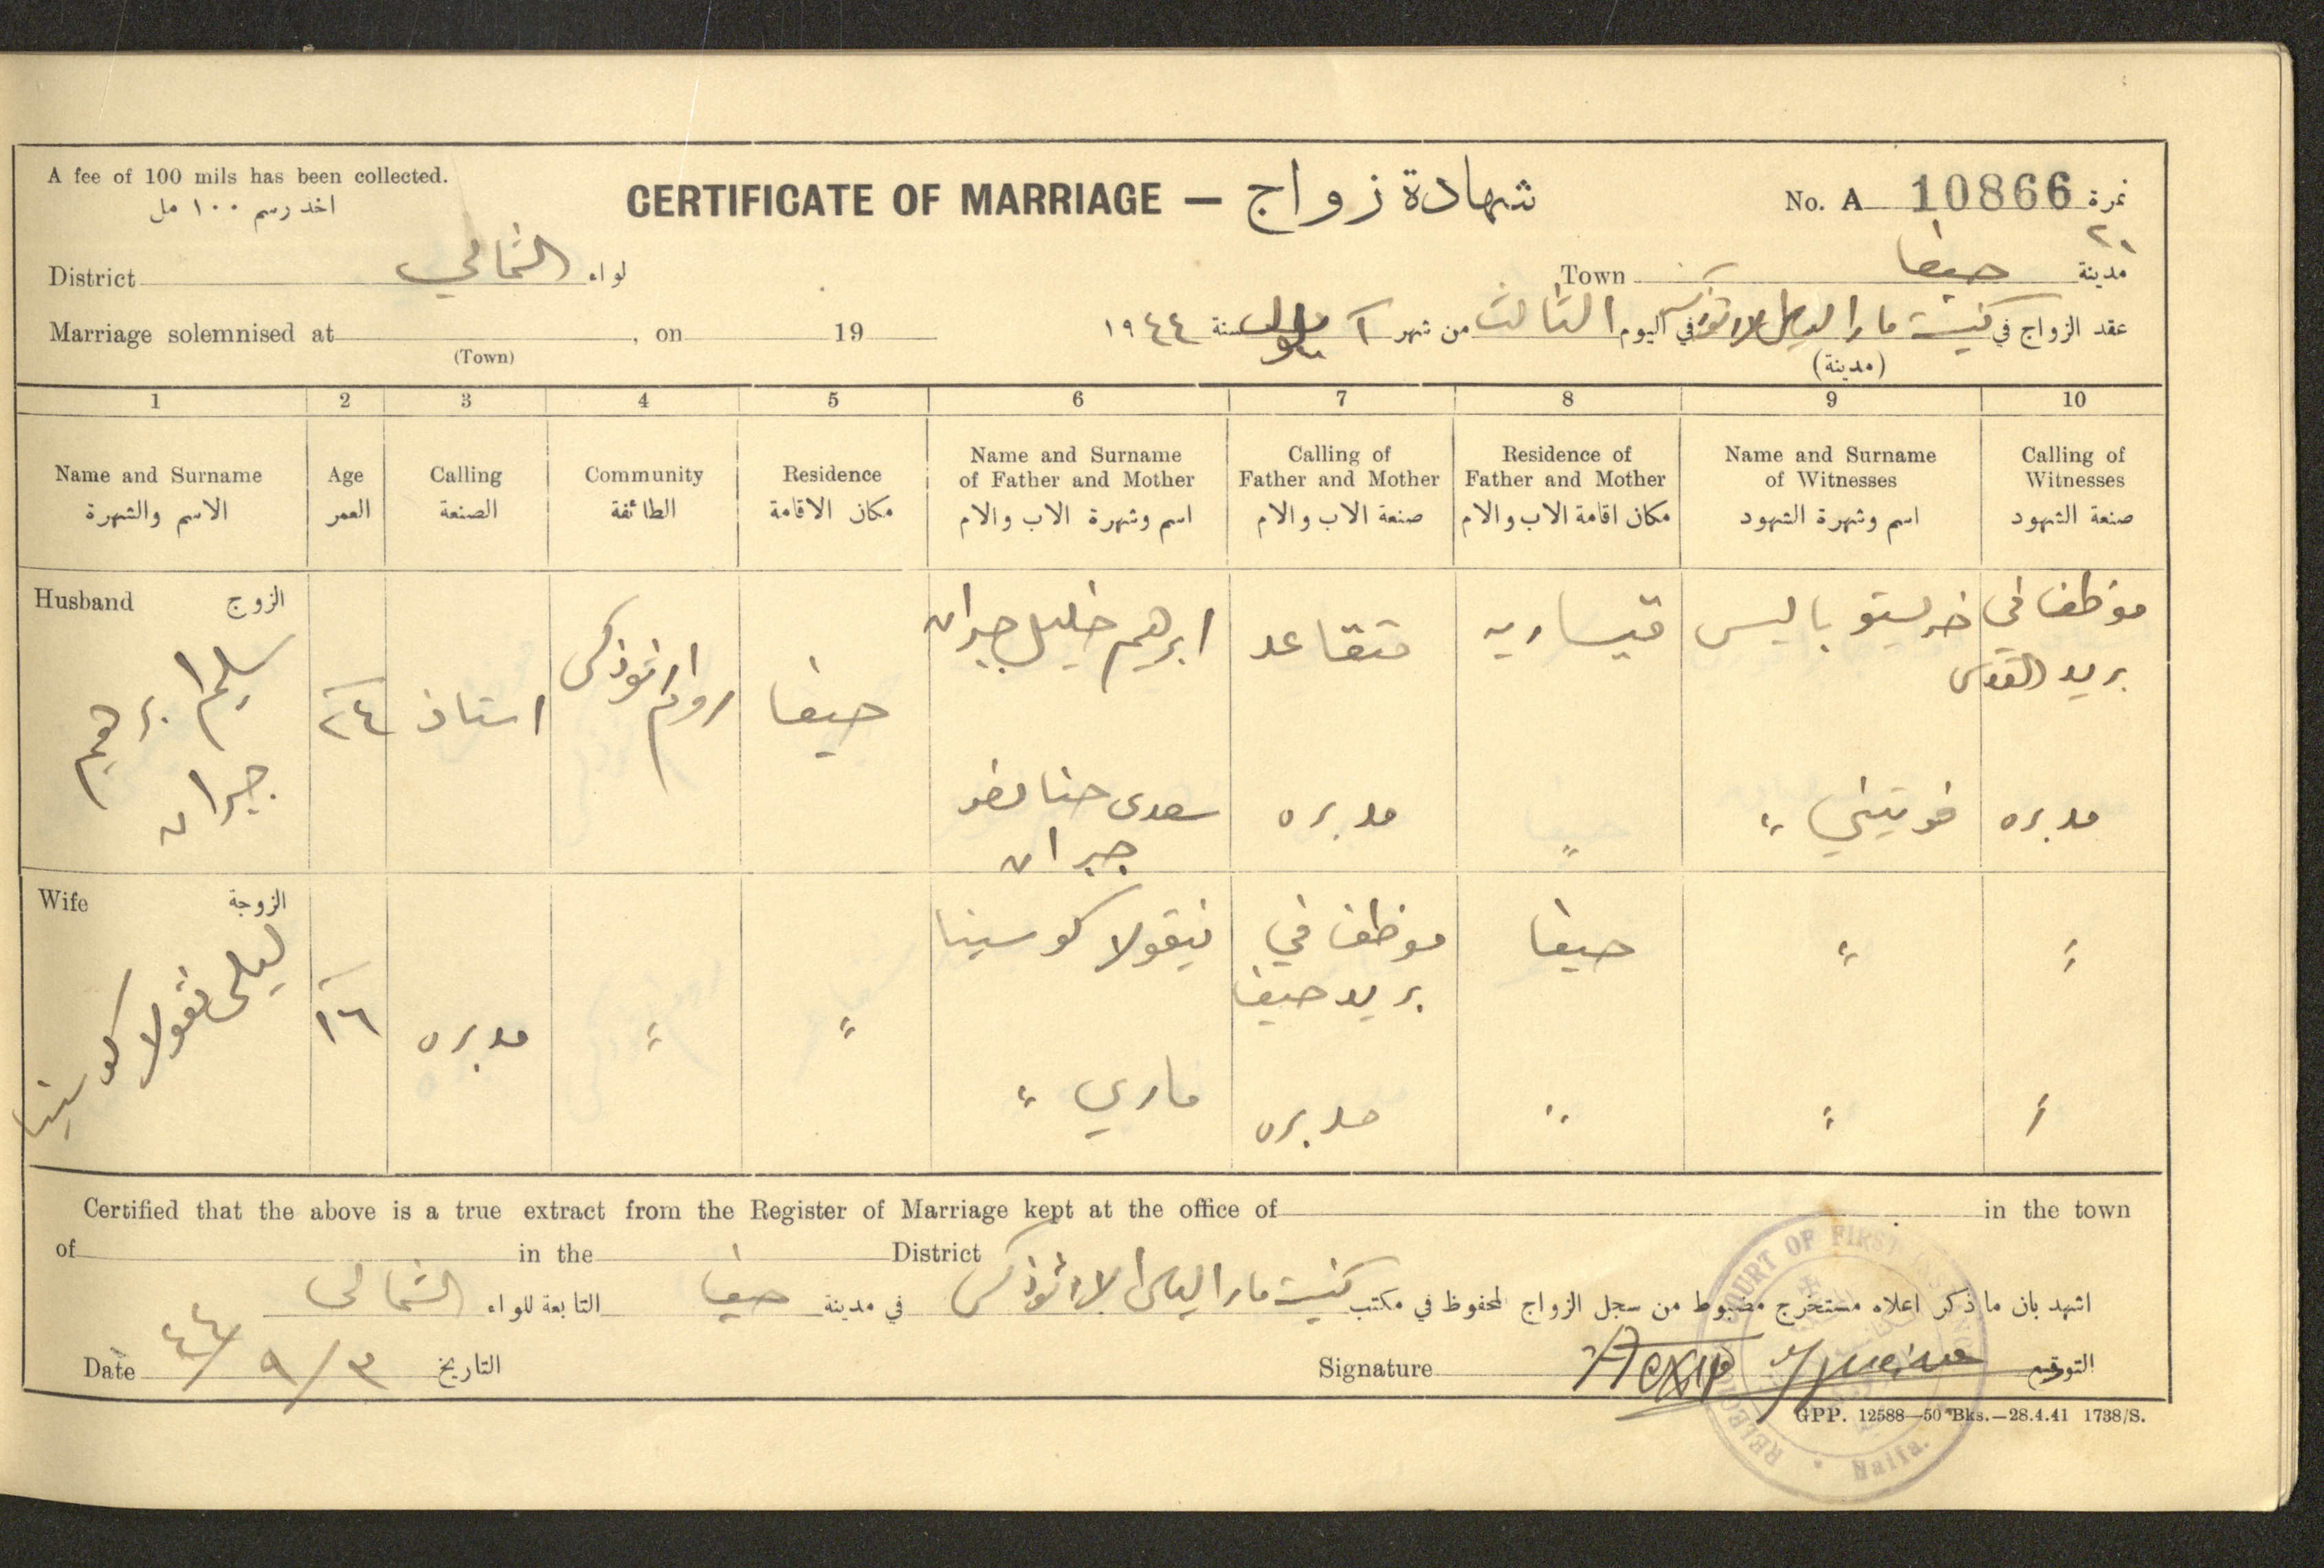 A fee of 100 mils has been collected.
اخذ رسم ١٠٠ مل
CERTIFICATE OF MARRIAGE — شهادة زواج
No. A 10866 نمرة
٢١
District الشمالي لواء
Town حيفا مدينة
Marriage solemnised at , on 19
(Town)
عقد الزواج في كنيسة مار الياس للارثوذكس في اليوم الثالث من شهر سنة ١٩٤٤
(مدينة)
1 2 3 4 5 6 7 8 9 10
Name and Surname
الاسم والشهرة
Age
العمر
Calling
الصنعة
Community
الطائفة
Residence
مكان الاقامة
Name and Surname
of Father and Mother
اسم وشهرة الاب والام
Calling of
Father and Mother
صنعة الاب والام
Residence of
Father and Mother
مكان اقامة الاب والام
Name and Surname
of Witnesses
اسم وشهرة الشهود
Calling of
Witnesses
صنعة الشهود
Husband الزوج
سليم ابرهيم
جبران
٢٤
استاذ
روم ارثوذكس
حيفا
ابرهيم خليل جبران
متقاعد
قيساريه
خرستو باليس
موظف في
بريد القدس
سعدى حنا
جبران
مدبره
حيفا
فوتيني "
مدبره
Wife الزوجة
ليلى نقولا كوسينا
١٦
مدبره
"
"
نيقولا كوسينا
موظف في
بريد حيفا
حيفا
"
"
ماري "
مدبره
"
"
"
Certified that the above is a true extract from the Register of Marriage kept at the office of in the town
of in the District
اشهد بان ما ذكر اعلاه مستخرج مضبوط من سجل الزواج المحفوظ في مكتب كنيسة مار الياس الارثوذكس في مدينة حيفا التابعة للواء الشمالي
Date ٣/٩/٤٤ التاريخ
Signature التوقيع
GPP. 12588—50 Bks.—28.4.41 1738/S.
COURT OF FIRST
Haifa.